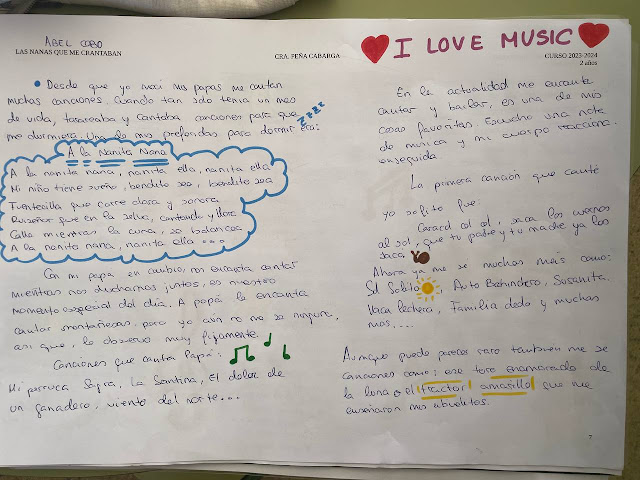 ABEL COBO
LAS NANAS QUE ME CANTABAN
CRA. PEÑA CABARGA
I LOVE MUSIC
CURSO 2023-2024
2 años
Desde que yo nací mis papas me cantan
muchas canciones. Cuando tan solo tenía un mes
de vida, tarareaba y cantaba canciones para que
me durmiera. Una de mis preferidas para dormir es:
zzzz
A la Nanita Nana
A la nanita nana, nanita ella, nanita ella
Mi niño tiene sueño, bendito sea, bendito sea
Fuentecilla que corre clara y sonora
Ruiseñor que en la selva, cantando y llora
Calla mientras la cuna, se balancea
A la nanita nana, nanita ella ...
Con mi papa en cambio, me encanta cantar
mientras nos duchamos juntos, es nuestro
momento especial del día. A papá le encanta
cantar montañesas, pero yo aún no me se ninguna,
asi que, lo observo muy fijamente.
Canciones que canta Papá:
Mi perruca Sagra, La Santina, El dolor de
un ganadero, viento del norte...
En la actualidad me encanta
cantar y bailar, es una de mis
cosas favoritas. Escucho una nota
de música y mi cuerpo reacciona
enseguida.
La primera canción que canté
yo solito fue:
Caracol col col, saca los cuernos
al sol, que tu padre y tu madre ya los
saca
Ahora ya me se muchas más como:
Sol Solito, Auto Bachindero, Susanita,
Vaca lechera, Familia dedo y muchas
mas,...
Aunque puede parecer raro también me se
canciones como: ese toro enamorado de
la luna o el tractor amarillo que me
enseñaron mis abuelitos.
7